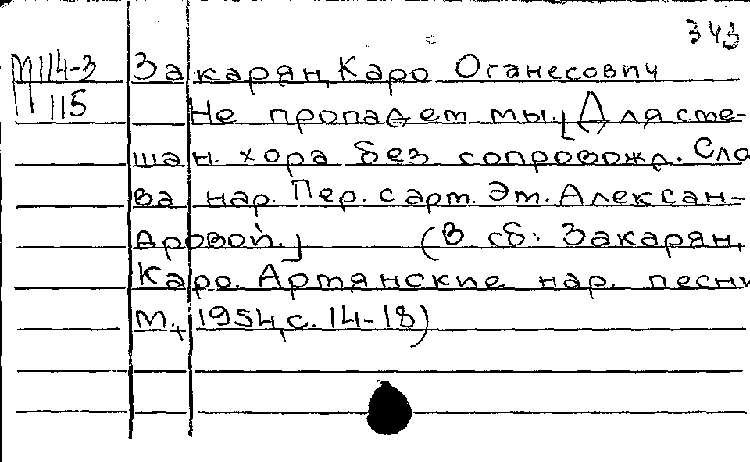 343
М114-3 Закарян, Каро Оганесович
115 Не пропадем мы. [Для сме-
шан. хора без сопровожд. Сло
ва нар. Пер. с арт. Эт. Алексан-
дровой.] (В сб: Закарян,
Каро. Артянские нар. песни
М., 1954, с. 14-18)